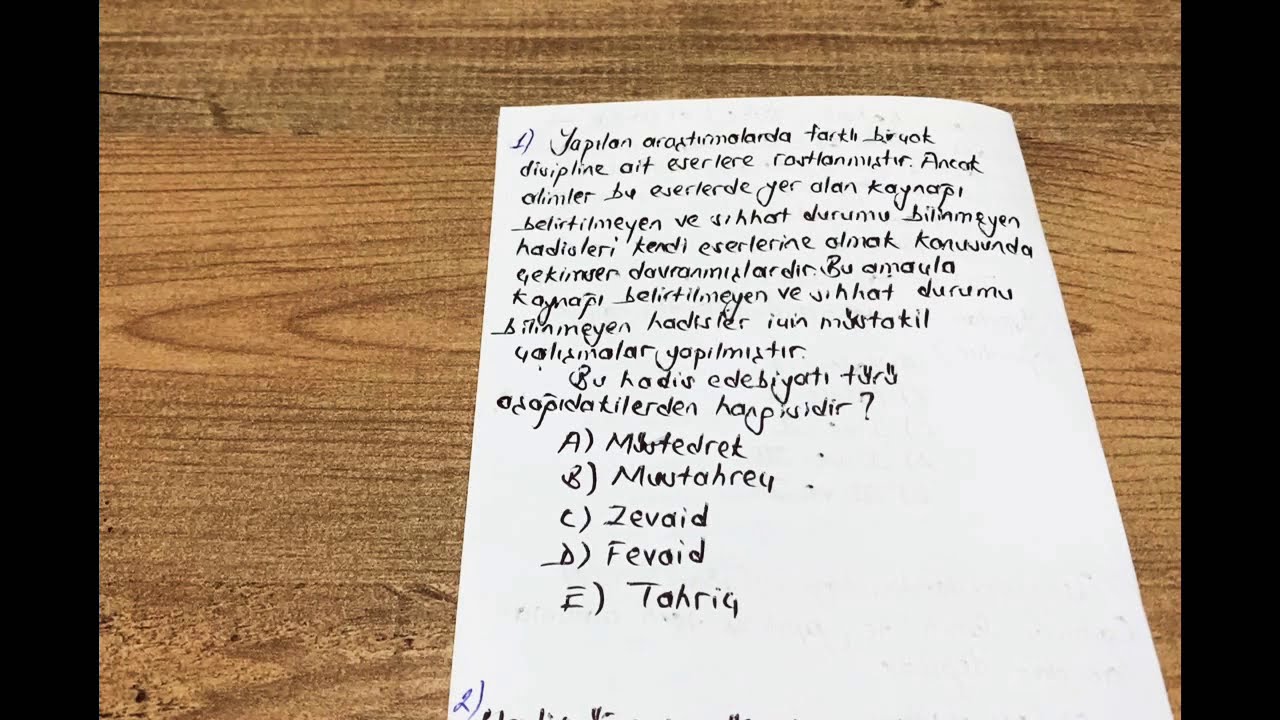 1) Yapılan araştırmalarda farklı birçok
disipline ait eserlere rastlanmıştır. Ancak
alimler bu eserlerde yer alan kaynağı
belirtilmeyen ve sıhhat durumu bilinmeyen
hadisleri kendi eserlerine almak konusunda
çekimser davranmışlardır. Bu amaçla
kaynağı belirtilmeyen ve sıhhat durumu
bilinmeyen hadisler için müstakil
çalışmalar yapılmıştır.
Bu hadis edebiyatı türü
aşağıdakilerden hangisidir?
A) Müstedrek
B) Mustahreç
C) Zevaid
D) Fevaid
E) Tahriç
2)